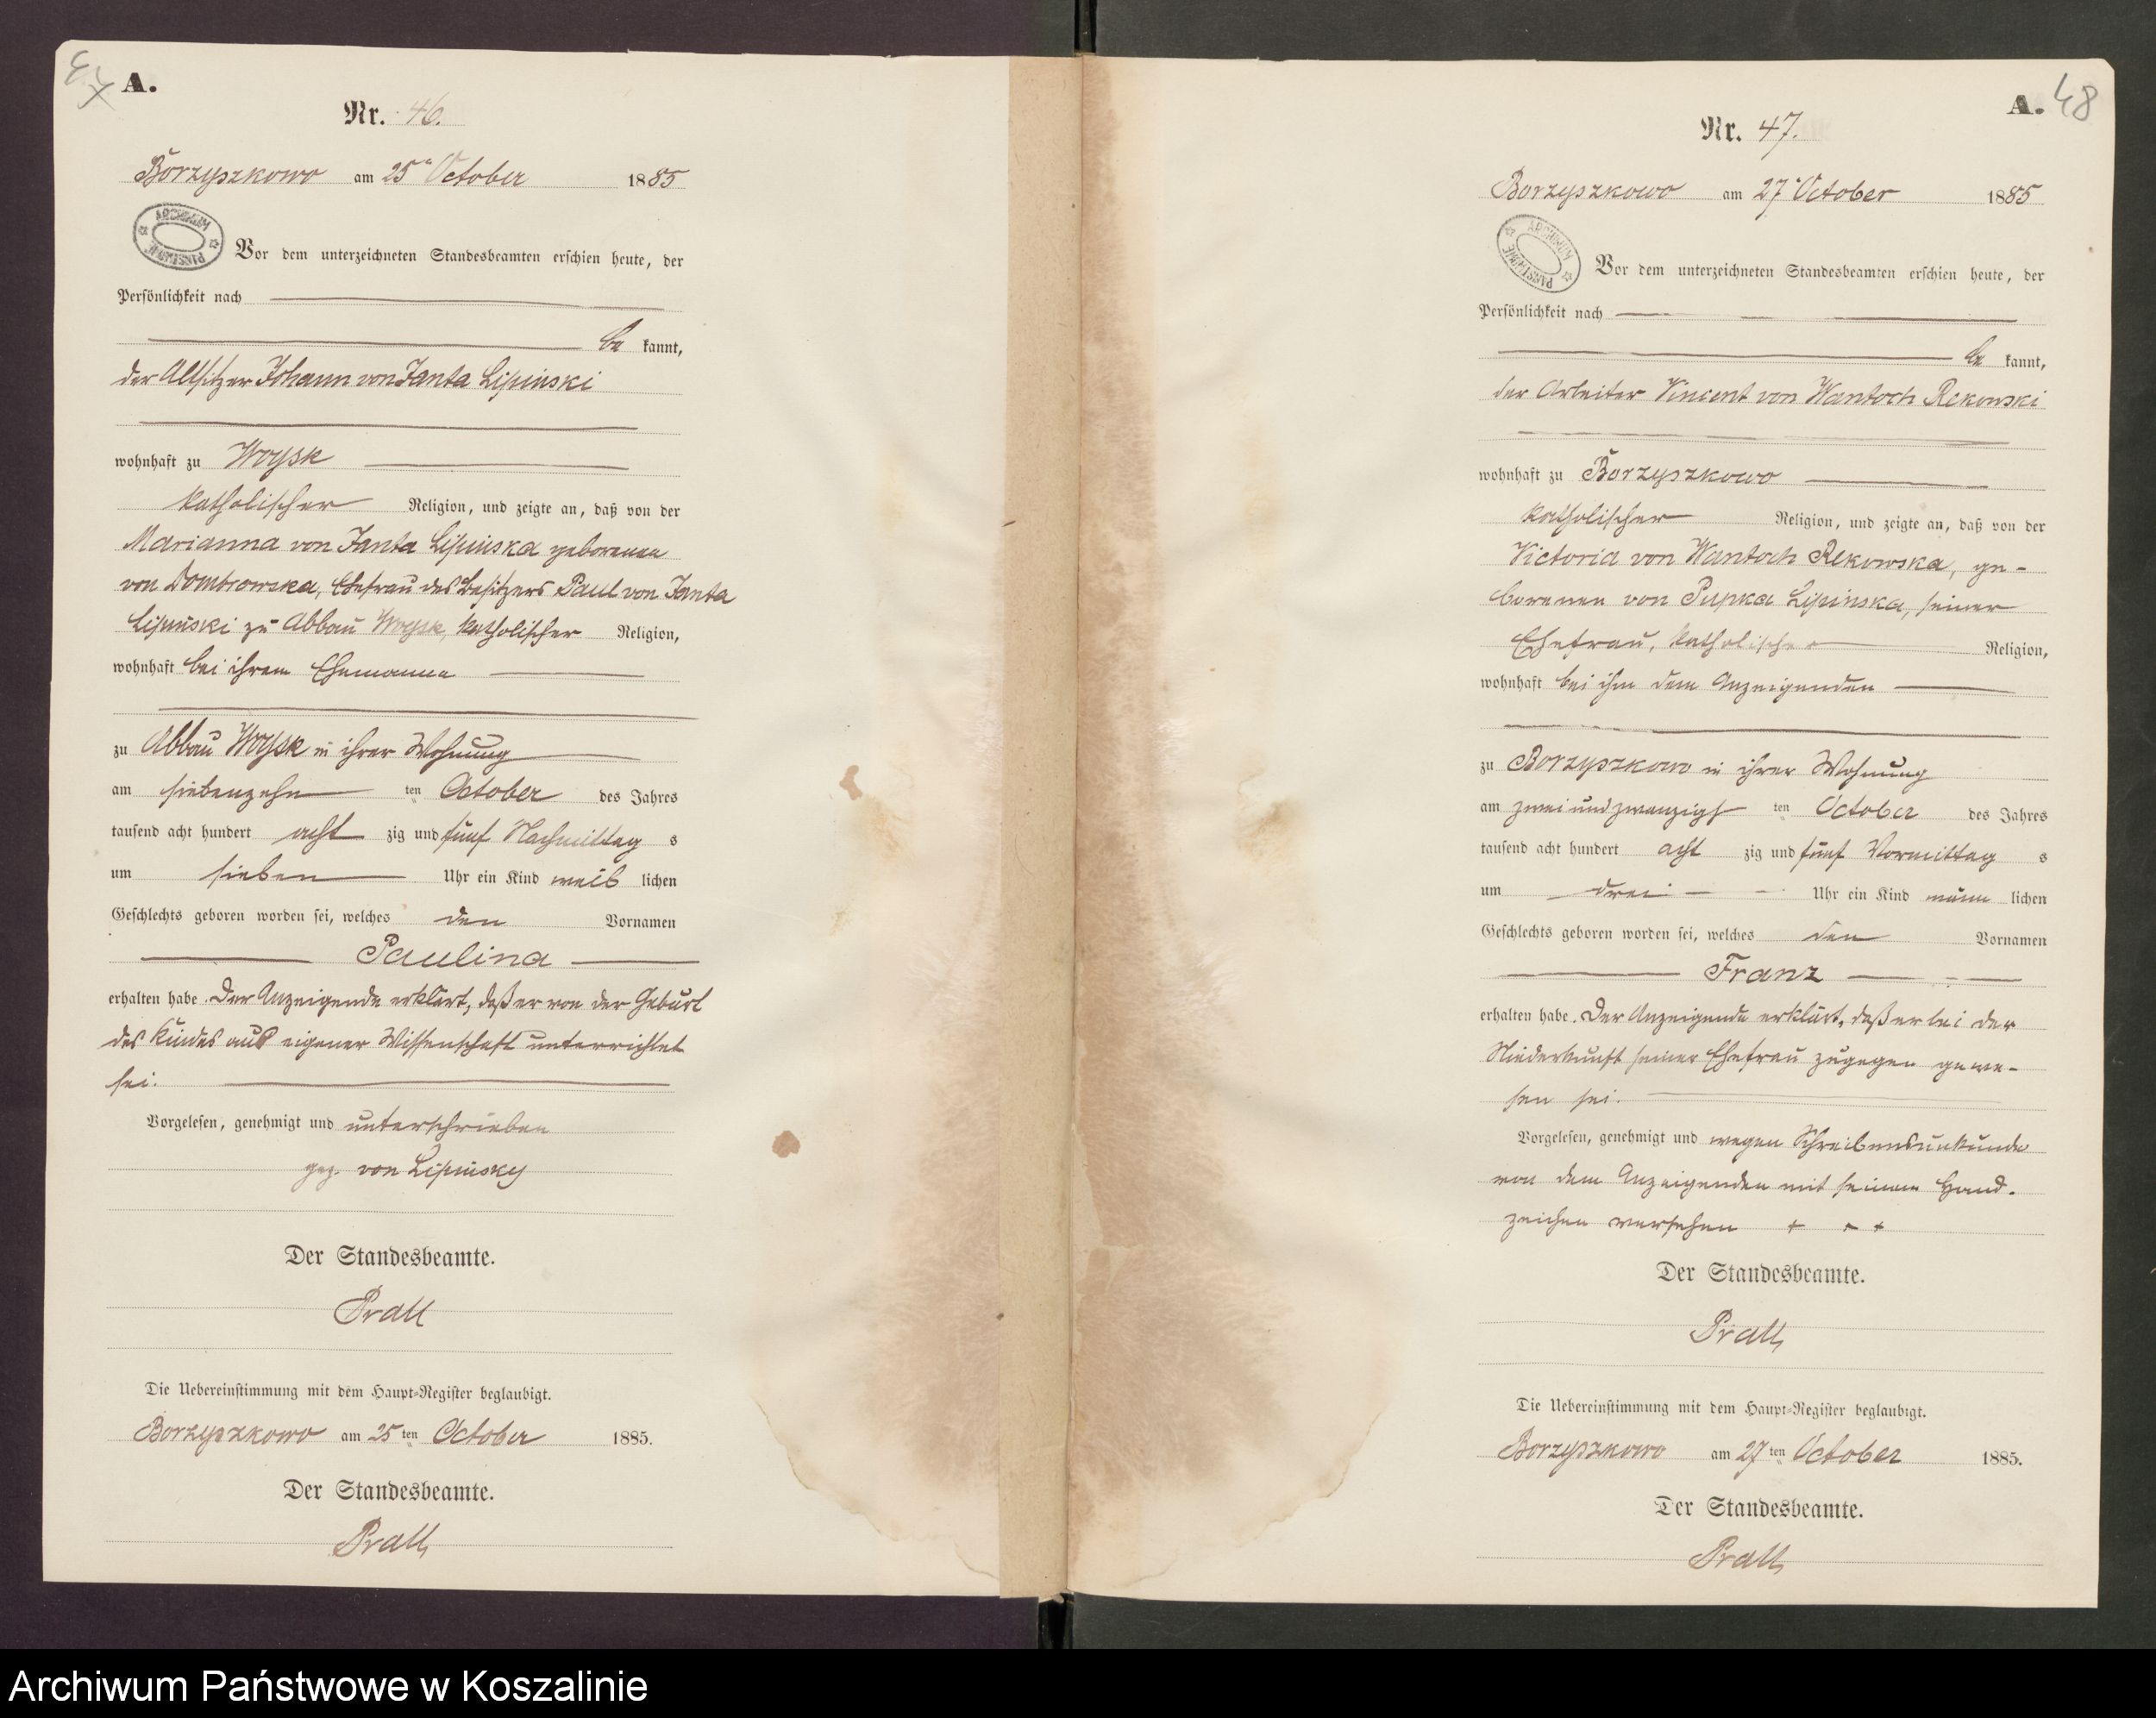 A.
Nr. 46.
Borzyszkowo am 25ª October 1885
ARCHIWUM PAŃSTWOWE
Vor dem unterzeichneten Standesbeamten erschien heute, der
Persönlichkeit nach
be kannt,
der Altsitzer Johann von Janta Lipinski
wohnhaft zu Woysk
katholischer Religion, und zeigte an, daß von der
Marianna von Janta Lipinska geborenen
von Dombrowska, Ehefrau des Besitzers Paul von Janta
Lipinski zu Abbau Woysk, katholischer Religion,
wohnhaft bei ihrem Ehemanne
zu Abbau Woysk in ihrer Wohnung
am siebenzehn ten October des Jahres
tausend acht hundert acht zig und fünf Nachmittag s
um sieben Uhr ein Kind weib lichen
Geschlechts geboren worden sei, welches den Vornamen
Paulina
erhalten habe. Der Anzeigende erklärt, daß er von der Geburt
des Kindes aus eigener Wissenschaft unterrichtet
sei.
Vorgelesen, genehmigt und unterschrieben
gez. von Lipinsky
Der Standesbeamte.
Prall
Die Uebereinstimmung mit dem Haupt-Register beglaubigt.
Borzyszkowo am 25 ten October 1885.
Der Standesbeamte.
Prall
A. 48
Nr. 47.
Borzyszkowo am 27ª October 1885
ARCHIWUM PAŃSTWOWE
Vor dem unterzeichneten Standesbeamten erschien heute, der
Persönlichkeit nach
be kannt,
der Arbeiter Vincent von Wantoch Rekowski
wohnhaft zu Borzyszkowo
katholischer Religion, und zeigte an, daß von der
Victoria von Wantoch Rekowska, ge-
borenen von Pupka Lipinska, seiner
Ehefrau, katholischer Religion,
wohnhaft bei ihm dem Anzeigenden
zu Borzyszkowo in ihrer Wohnung
am zwei und zwanzigs ten October des Jahres
tausend acht hundert acht zig und fünf Vormittag s
um drei Uhr ein Kind männ lichen
Geschlechts geboren worden sei, welches den Vornamen
Franz
erhalten habe. Der Anzeigende erklärt, daß er bei der
Niederkunft seiner Ehefrau zugegen gewe-
sen sei.
Vorgelesen, genehmigt und wegen Schreibensunkunde
von dem Anzeigenden mit seinem Hand-
zeichen versehen + + +
Der Standesbeamte.
Prall
Die Uebereinstimmung mit dem Haupt-Register beglaubigt.
Borzyszkowo am 27 ten October 1885.
Der Standesbeamte.
Prall
Archiwum Państwowe w Koszalinie